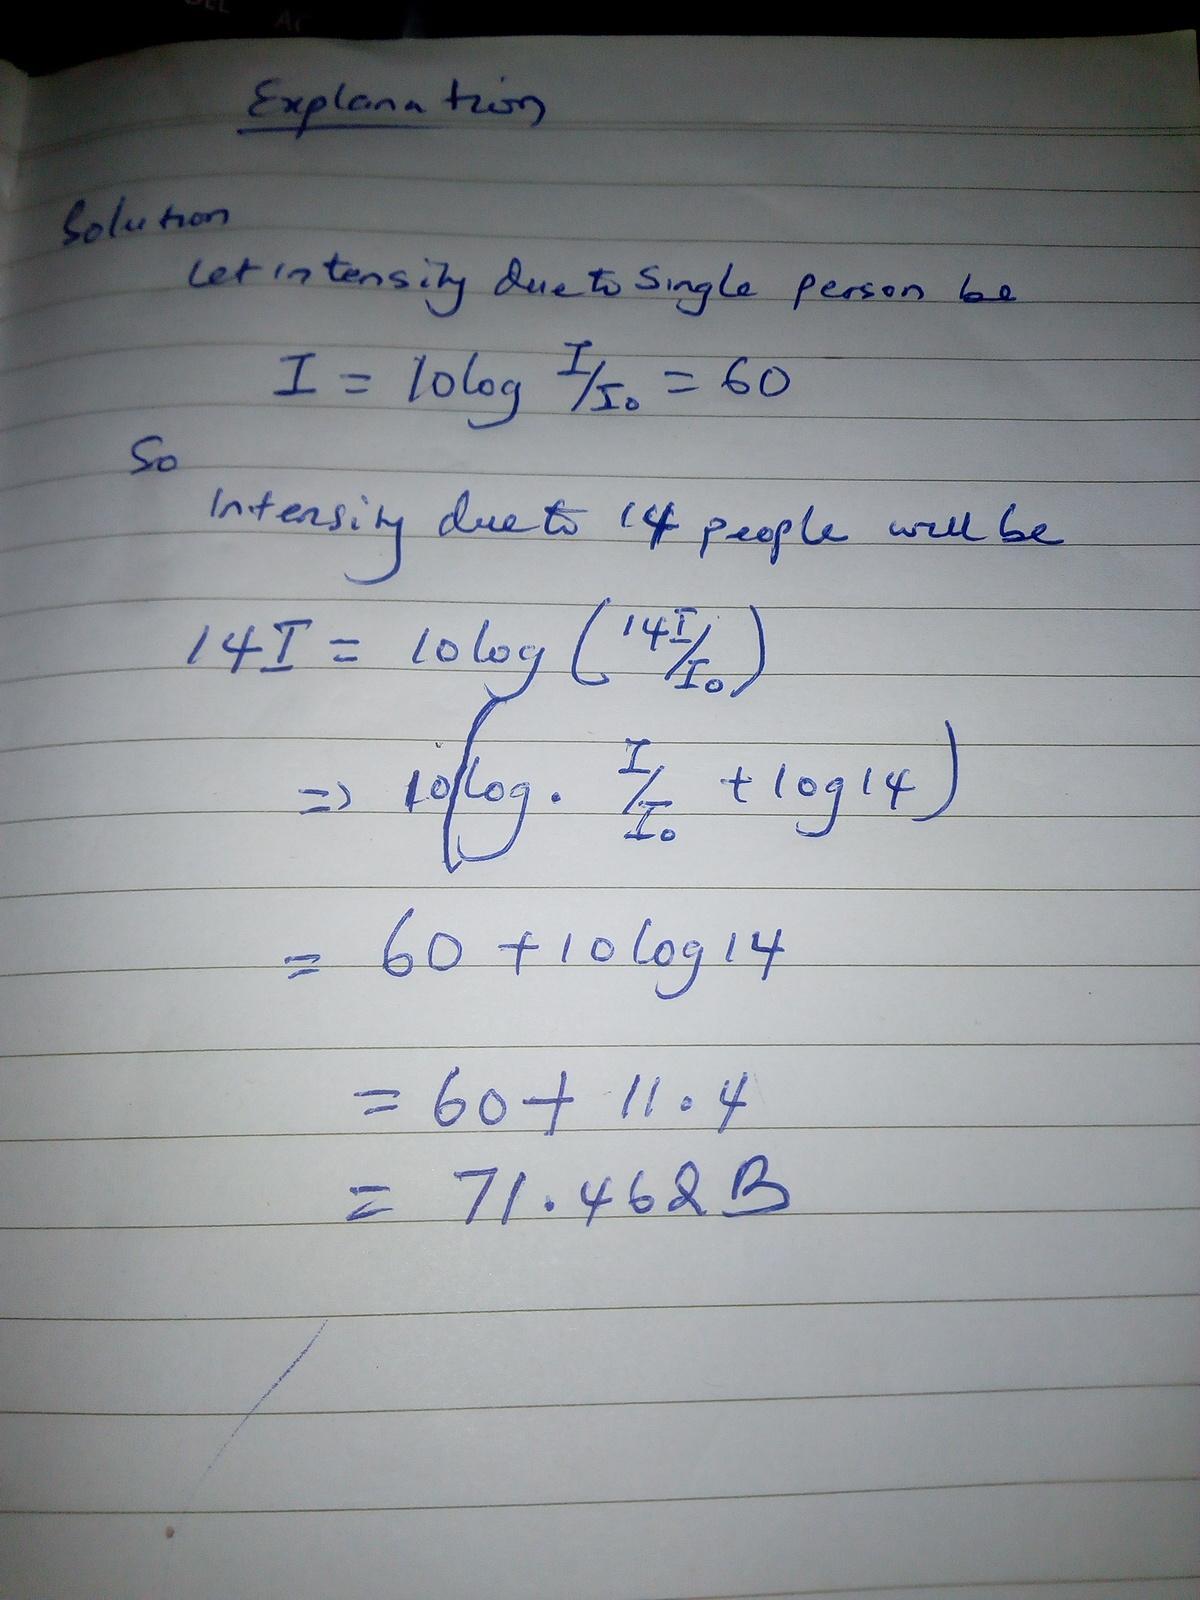 Explanation
Solution
Let intensity due to single person be
I = 10log I/I₀ = 60
So
Intensity due to 14 people will be
14I = 10log (14I/I₀)
=> 10(log. I/I₀ + log14)
= 60 + 10log14
= 60 + 11.4
= 71.462B